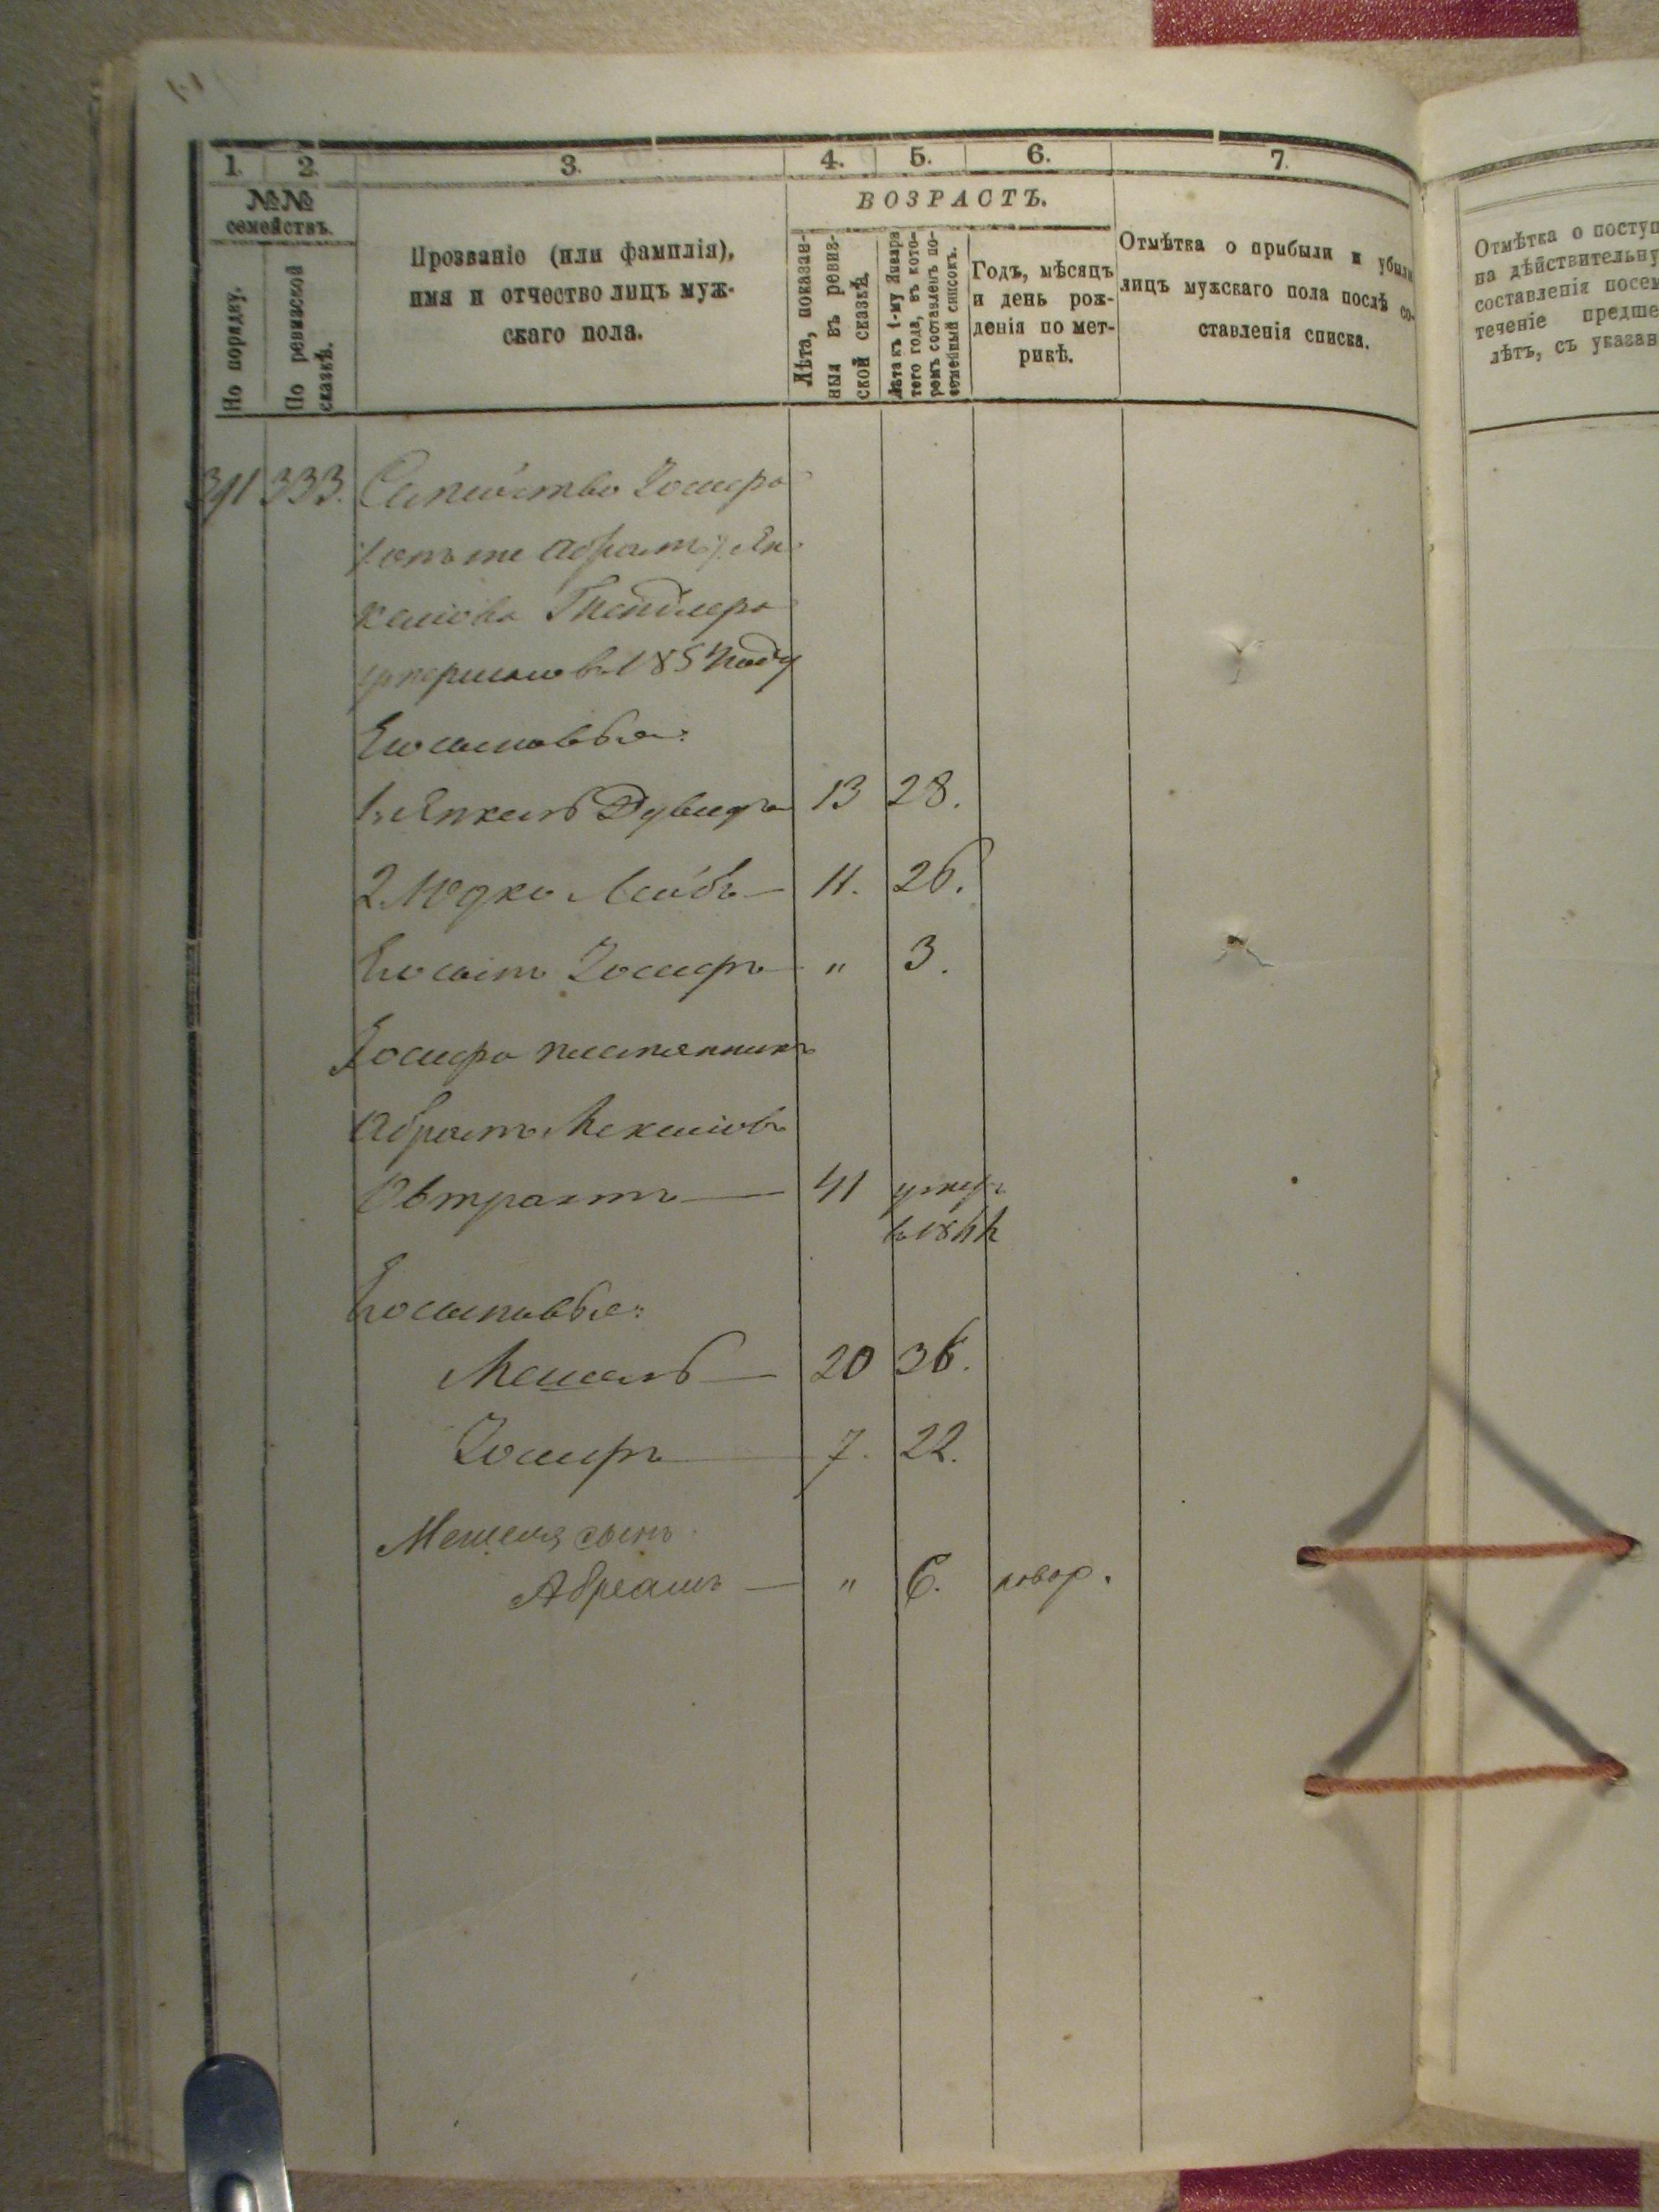 1. 2. 3. 4. 5. 6. 7.
№№
семействъ.
По порядку.
По ревизской
сказкѣ.
Прозваніе (или фамилія),
имя и отчество лицъ муж-
скаго пола.
ВОЗРАСТЪ.
Лѣта, показан-
ныя въ ревиз-
ской сказкѣ.
Лѣта къ 1-му Января
того года, въ кото-
ромъ составленъ по-
семейный списокъ.
Годъ, мѣсяцъ
и день рож-
денія по мет-
рикѣ.
Отмѣтка о прибыли и убыли
лицъ мужскаго пола послѣ со-
ставленія списка.
Отмѣтка о поступ
на дѣйствительну
составленія посем
теченіе предше
лѣтъ, съ указан
391 333. Семейство Іосифа
Абрамъ Ян-
келіова
умершаго въ 1854 году
Его сыновья:
1. Янкель Дувидъ 13 28.
2. Юдко Лейбъ — 11. 26.
Его сынъ Іосифъ " 3.
Іосифа племянникъ
Абрамъ
41 умеръ
Его сыновья:
Мешель — 20 36.
Іосифъ 7. 22.
Мешеля сынъ
Абрамъ — " 6.